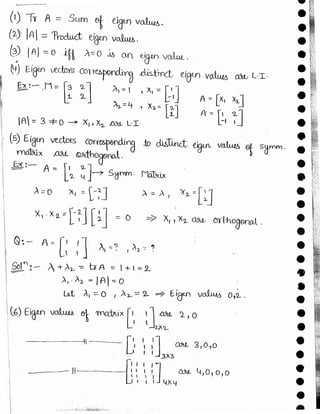 (1) Tr A = Sum of eigen values.
(2) |A| = Product eigen values.
(3) |A| = 0 iff λ=0 is an eigen value.
(4) Eigen vectors corresponding distinct eigen values are L.I.
Ex:- M = [3 2; 1 2] λ₁ = 1 , X₁ = [1; -1]
λ₂ = 4 , X₂ = [2; 1] A = [X₁ X₂]
A = [1 2; -1 1]
|A| = 3 ≠ 0 → X₁, X₂ are L.I.
(5) Eigen vectors corresponding to distinct eigen values of symm.
matrix are orthogonal.
Ex:- A = [1 2; 2 4] → Symm. Matrix
λ = 0 X₁ = [-2; 1] λ = λ , X₂ = [1; 2]
X₁ . X₂ = [-2; 1] [1; 2] = 0 ⇒ X₁, X₂ are orthogonal.
Q:- A = [1 1; 1 1] λ₁ = ? , λ₂ = ?
Solⁿ:- λ₁ + λ₂ = tr A = 1 + 1 = 2
λ₁ . λ₂ = |A| = 0
Let λ₁ = 0 , λ₂ = 2 ⇒ Eigen values 0,2.
(6) Eigen values of matrix [1 1; 1 1]2x2 are 2, 0
—— 11 —— [1 1 1; 1 1 1; 1 1 1]3x3 are 3, 0, 0
—— 11 —— [1 1 1 1; 1 1 1 1; 1 1 1 1; 1 1 1 1]4x4 are 4, 0, 0, 0